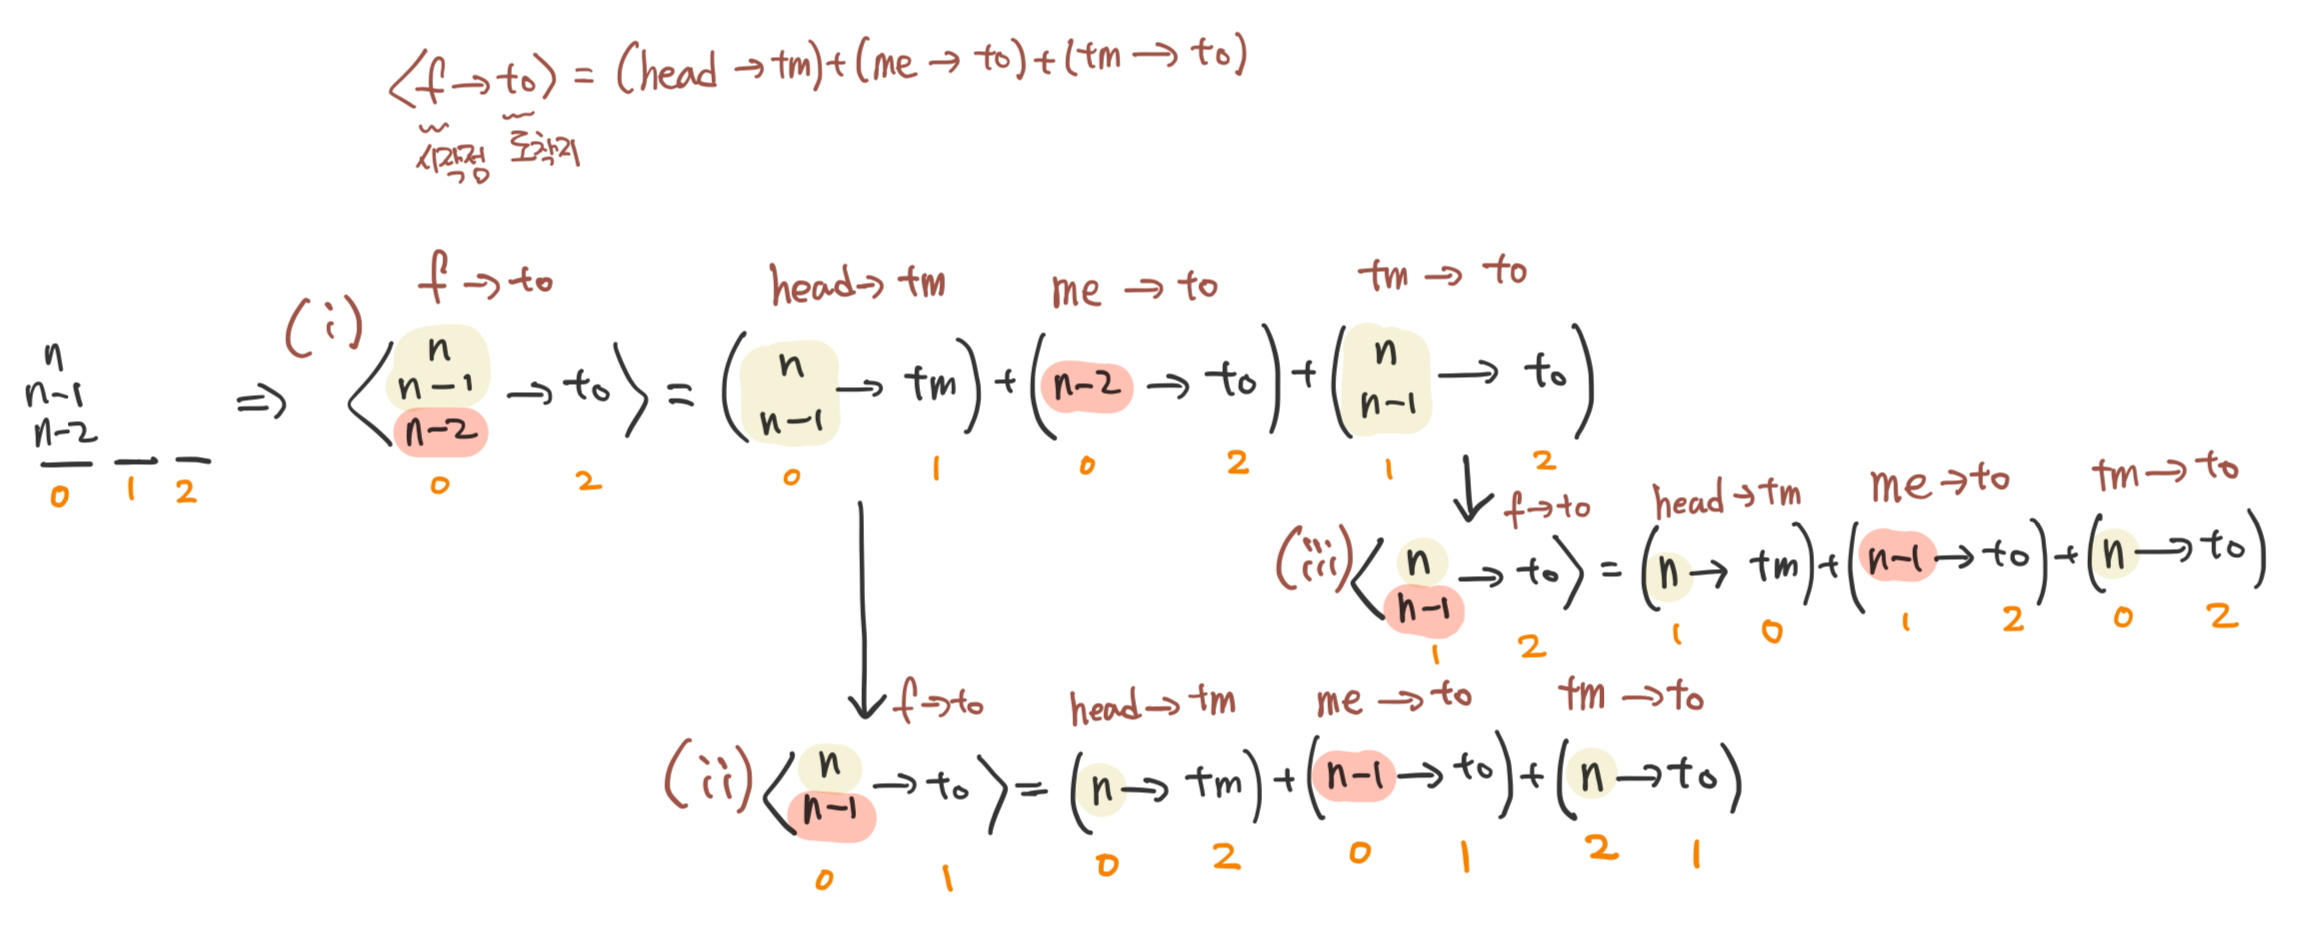 <f→to> = (head→tm)+(me→to)+(tm→to)
시작점 도착지
f→to head→tm me→to tm→to
(i)
n
n-1
n-2
0 1 2
⇒ < n n-1 n-2 → to > = ( n n-1 → tm ) + ( n-2 → to ) + ( n n-1 → to )
0 2 0 1 0 2 1 2
f→to head→tm me→to tm→to
(iii) < n n-1 → to > = ( n → tm ) + ( n-1 → to ) + ( n → to )
1 2 1 0 1 2 0 2
f→to head→tm me→to tm→to
(ii) < n n-1 → to > = ( n → tm ) + ( n-1 → to ) + ( n → to )
0 1 0 2 0 1 2 1